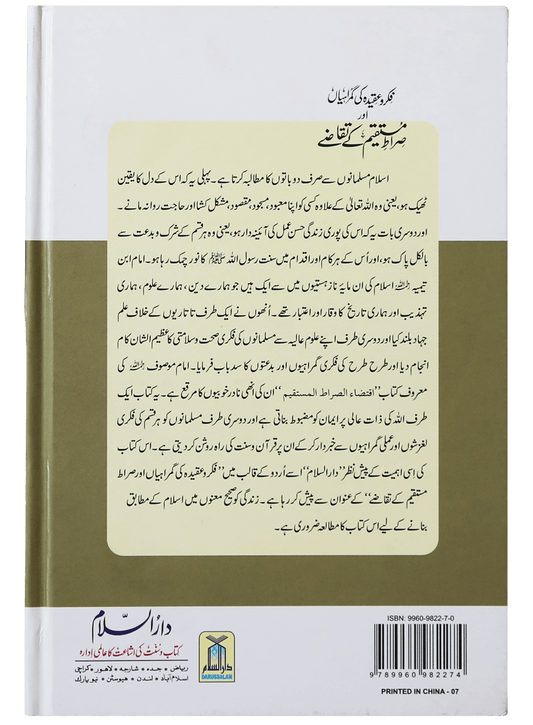 فکر و عقیدہ کی گمراہیاں
اور
صراطِ مستقیم کے تقاضے
اسلام مسلمانوں سے صرف دو باتوں کا مطالبہ کرتا ہے۔ پہلی یہ کہ اس کے دل کا یقین
ٹھیک ہو، یعنی وہ اللہ تعالیٰ کے علاوہ کسی کو اپنا معبود، مسجود، مقصود، مشکل کشا اور حاجت روا نہ مانے۔
اور دوسری بات یہ کہ اس کی پوری زندگی حسن عمل کی آئینہ دار ہو، یعنی وہ ہر قسم کے شرک و بدعت سے
بالکل پاک ہو، اور اُس کے ہر کام اور اقدام میں سنت رسول اللہ ﷺ کا نور چمک رہا ہو۔ امام ابن
تیمیہ رحمہ اللہ اسلام کی ان مایۂ ناز ہستیوں میں سے ایک ہیں جو ہمارے دین، ہمارے علوم، ہماری
تہذیب اور ہماری تاریخ کا وقار اور اعتبار تھے۔ اُنھوں نے ایک طرف تاتاریوں کے خلاف علم
جہاد بلند کیا اور دوسری طرف اپنے علوم عالیہ سے مسلمانوں کی فکری صحت و سلامتی کا عظیم الشان کام
انجام دیا اور طرح طرح کی فکری گمراہیوں اور بدعتوں کا سد باب فرمایا۔ امام موصوف رحمہ اللہ کی
معروف کتاب ’’اقتضاء الصراط المستقيم‘‘ ان کی انھی نادر خوبیوں کا مرقع ہے۔ یہ کتاب ایک
طرف اللہ کی ذات عالی پر ایمان کو مضبوط بناتی ہے اور دوسری طرف مسلمانوں کو ہر قسم کی فکری
لغزشوں اور عملی گمراہیوں سے خبردار کر کے ان پر قرآن و سنت کی راہ روشن کر دیتی ہے۔ اس کتاب
کی اسی اہمیت کے پیش نظر ’’دارالسلام‘‘ اسے اُردو کے قالب میں ’’فکر و عقیدہ کی گمراہیاں اور صراط
مستقیم کے تقاضے‘‘ کے عنوان سے پیش کر رہا ہے۔ زندگی کو صحیح معنوں میں اسلام کے مطابق
بنانے کے لیے اس کتاب کا مطالعہ ضروری ہے۔
دارُ السلام
کتاب و سنت کی اشاعت کا عالمی ادارہ
ریاض • جدہ • شارجہ • لاہور • کراچی
اسلام آباد • لندن • ہیوسٹن • نیو یارک
دارالسلام
DARUSSALAM
ISBN: 9960-9822-7-0
9 789960 982274
PRINTED IN CHINA - 07